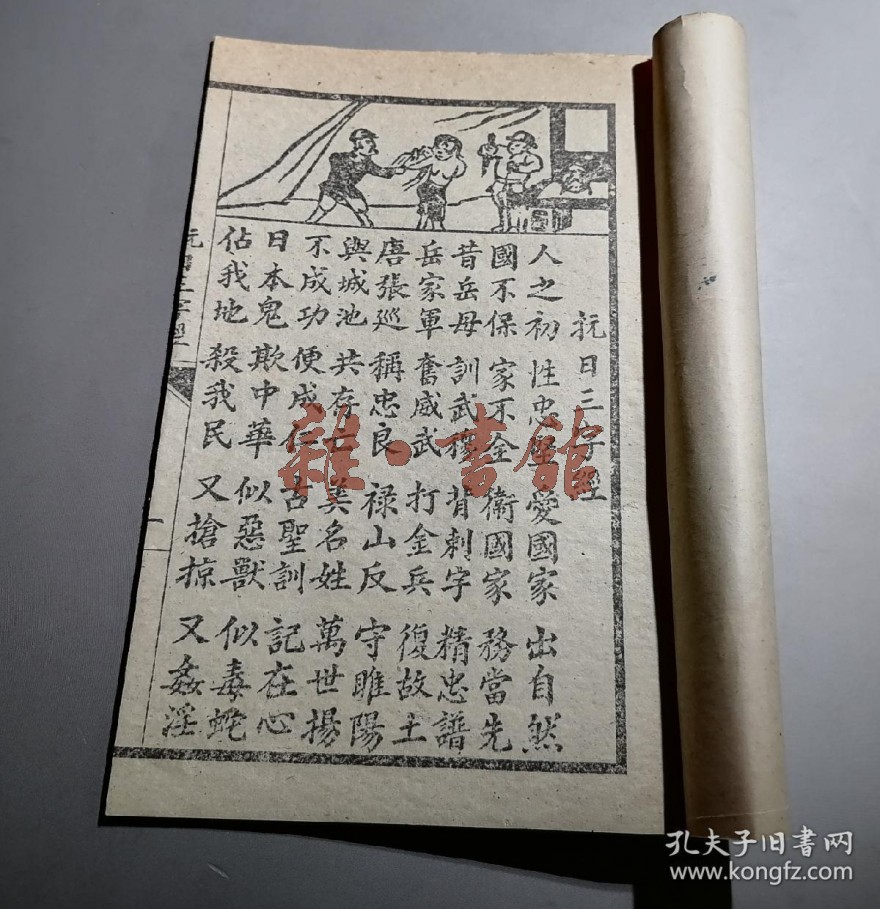 抗日三字經
人之初 性忠堅 愛國家 出自然
國不保 家不全 衛國家 務當先
昔岳母 訓武穆 背刺字 精忠譜
岳家軍 奮威武 打金兵 復故土
唐張巡 稱忠良 禄山反 守睢陽
與城池 共存亡 美名姓 萬世揚
不成功 便成仁 古聖訓 記在心
日本鬼 欺中華 似惡獸 似毒蛇
佔我地 殺我民 又搶掠 又姦淫
三字經
一
雜·書館
孔夫子旧书网
www.kongfz.com